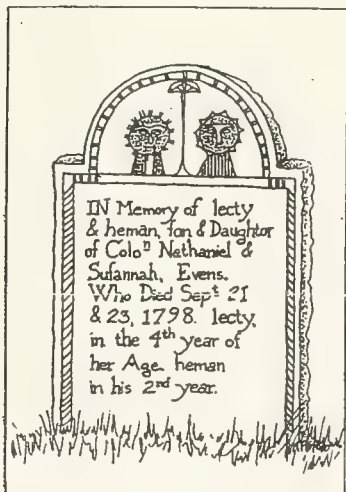 IN Memory of lecty
& heman, ſon & Daughtor
of Coloⁿ Nathaniel &
Suſannah, Evens.
Who Died Sepᵗ 21
& 23, 1798. lecty,
in the 4ᵗʰ year of
her Age heman
in his 2ⁿᵈ year.